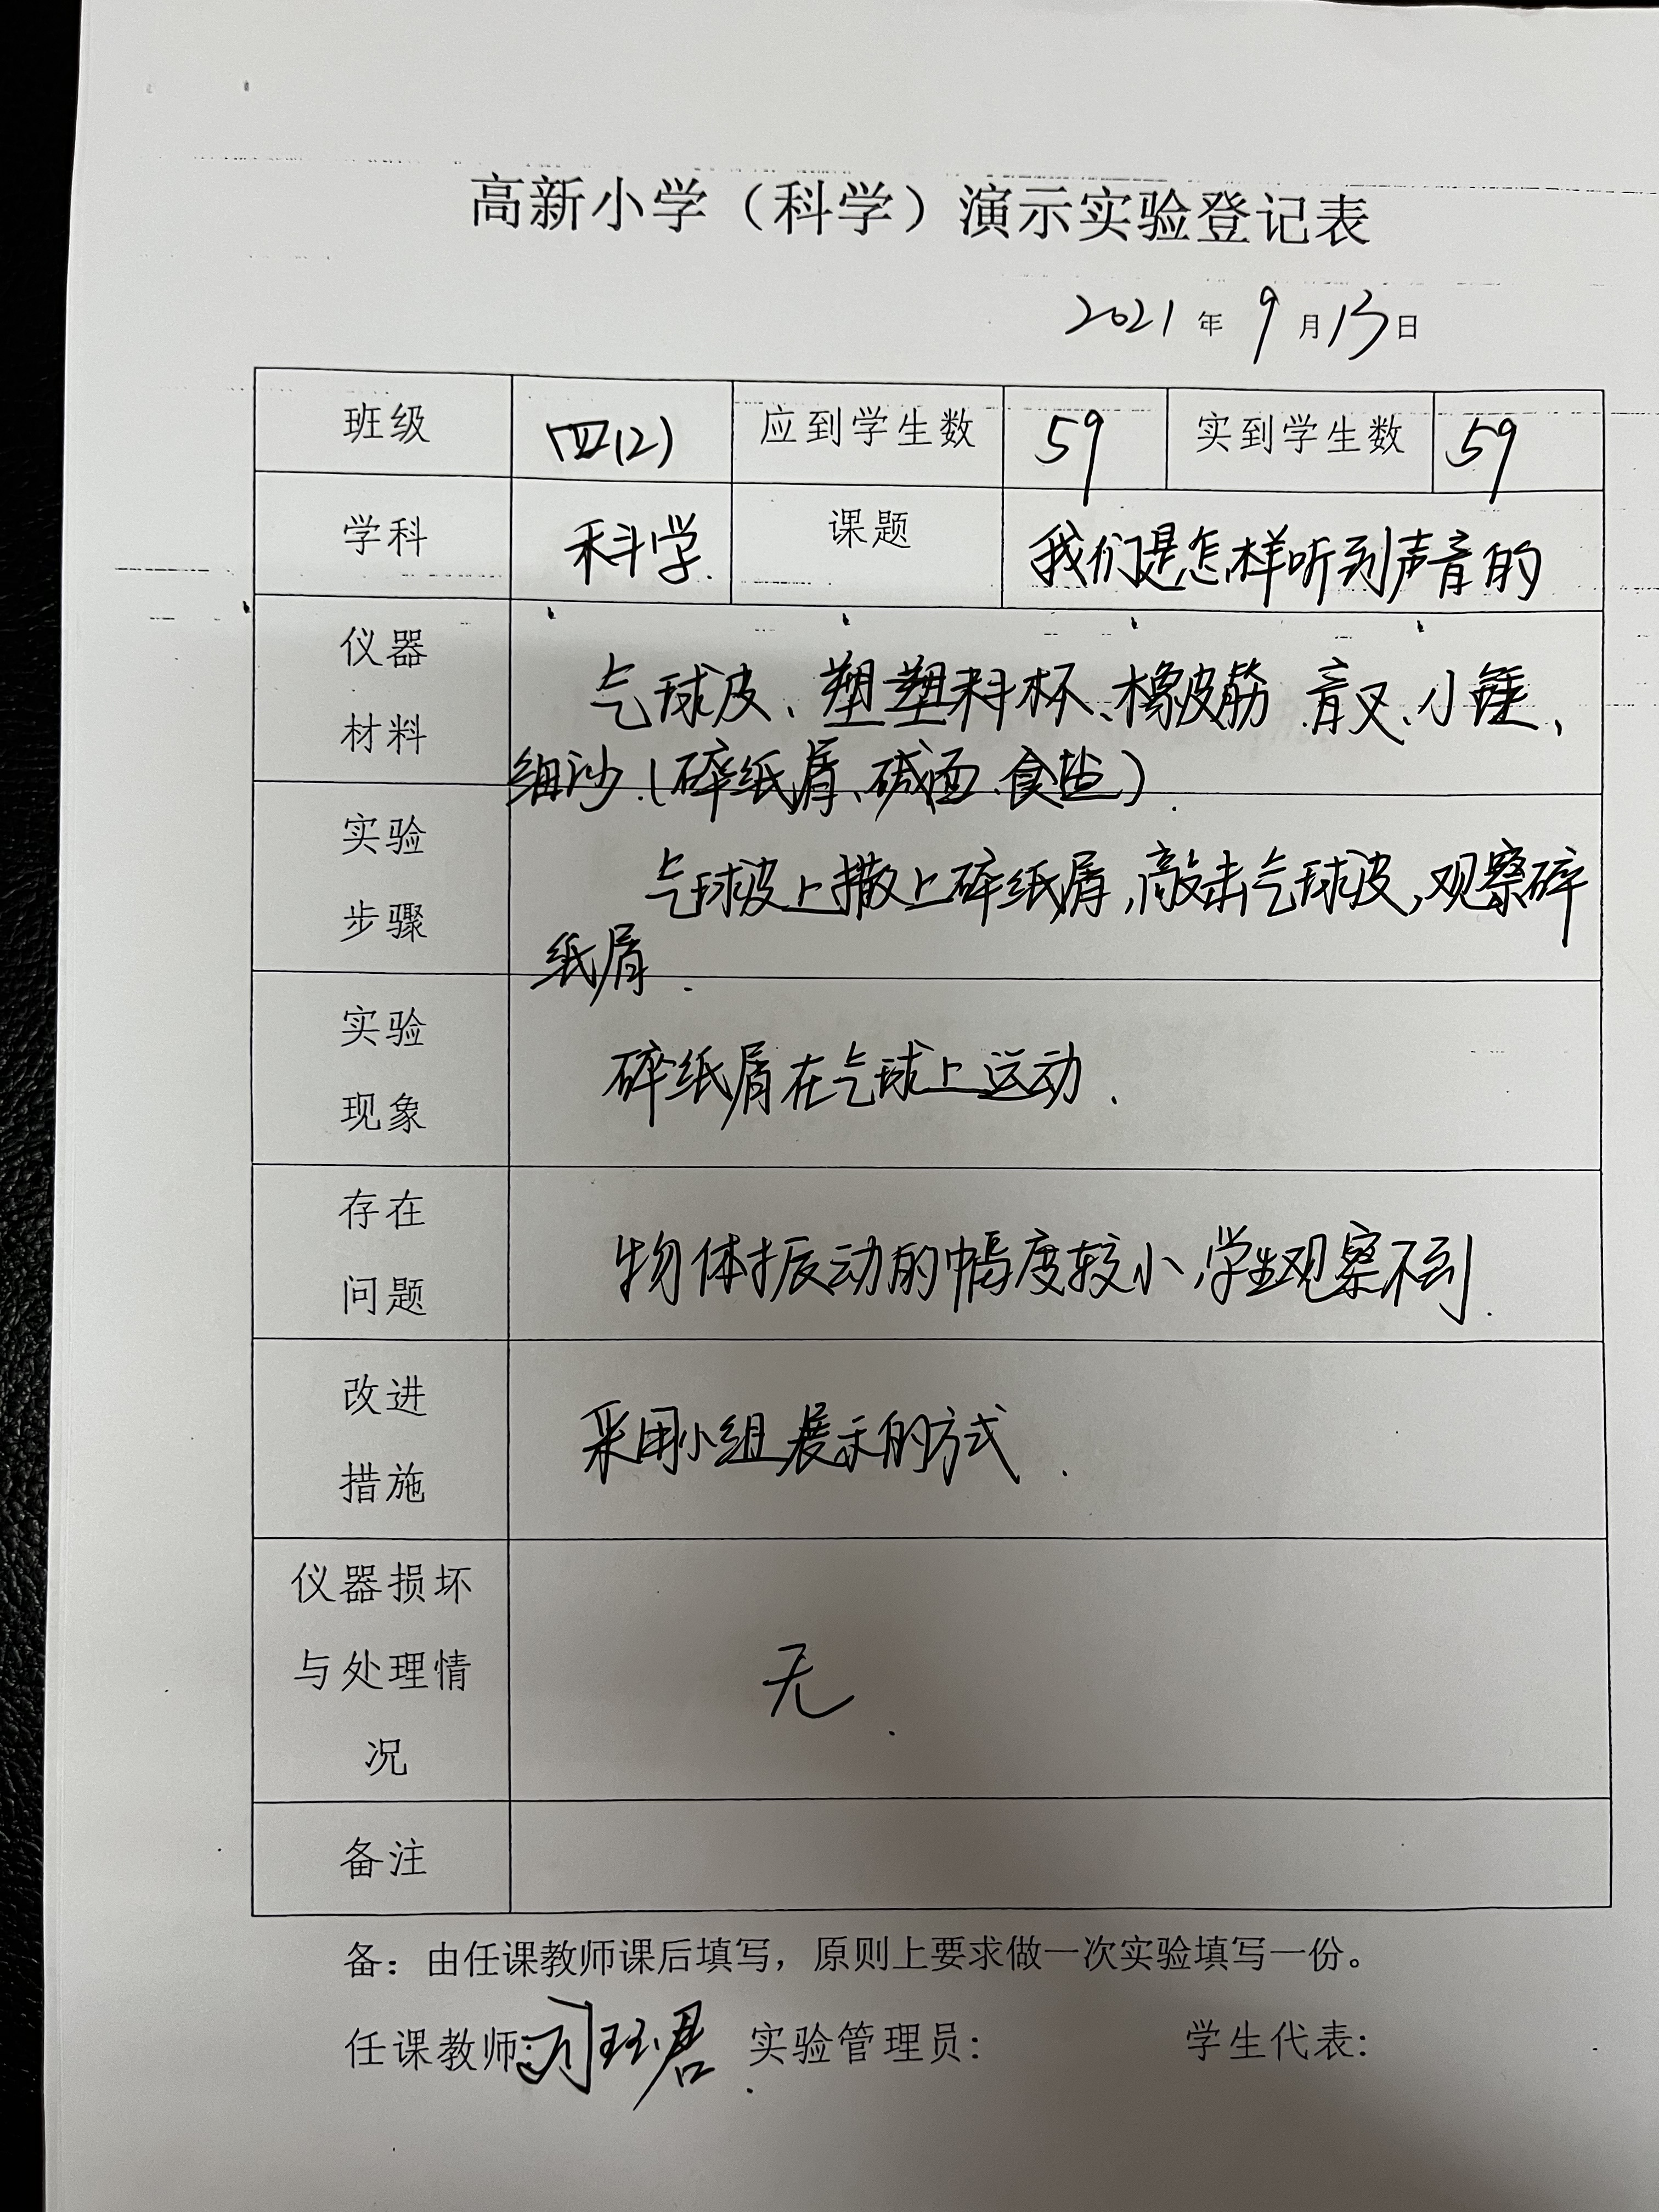 高新小学（科学）演示实验登记表
2021年9月13日
班级 四(2) 应到学生数 59 实到学生数 59
学科 科学. 课题 我们是怎样听到声音的
仪器
材料
气球皮、塑塑料杯、橡皮筋.音叉、小锤、
细沙.(碎纸屑、碱面.食盐).
实验
步骤
气球皮上撒上碎纸屑,敲击气球皮,观察碎
纸屑.
实验
现象
碎纸屑在气球上运动.
存在
问题
物体振动的幅度较小,学生观察不到.
改进
措施
采用小组展示的方式.
仪器损坏
与处理情
况
无.
备注
备：由任课教师课后填写，原则上要求做一次实验填写一份。
任课教师: 实验管理员: 学生代表: